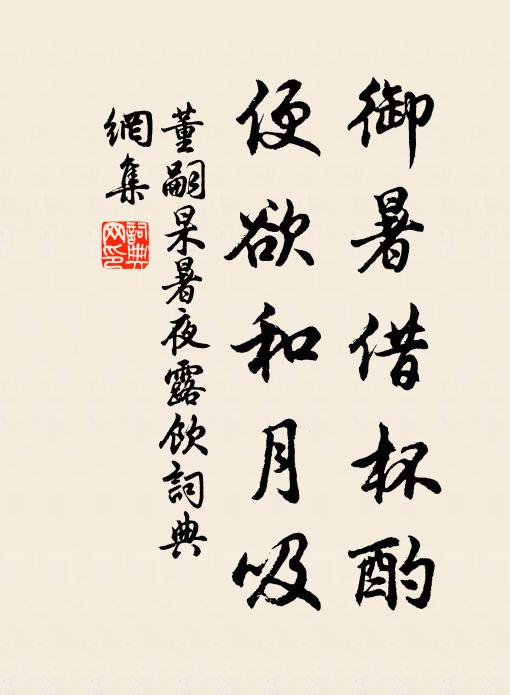 御暑借杯酌
便欲和月吸
董嗣杲暑夜露飲詞典
網集
詞典
网印